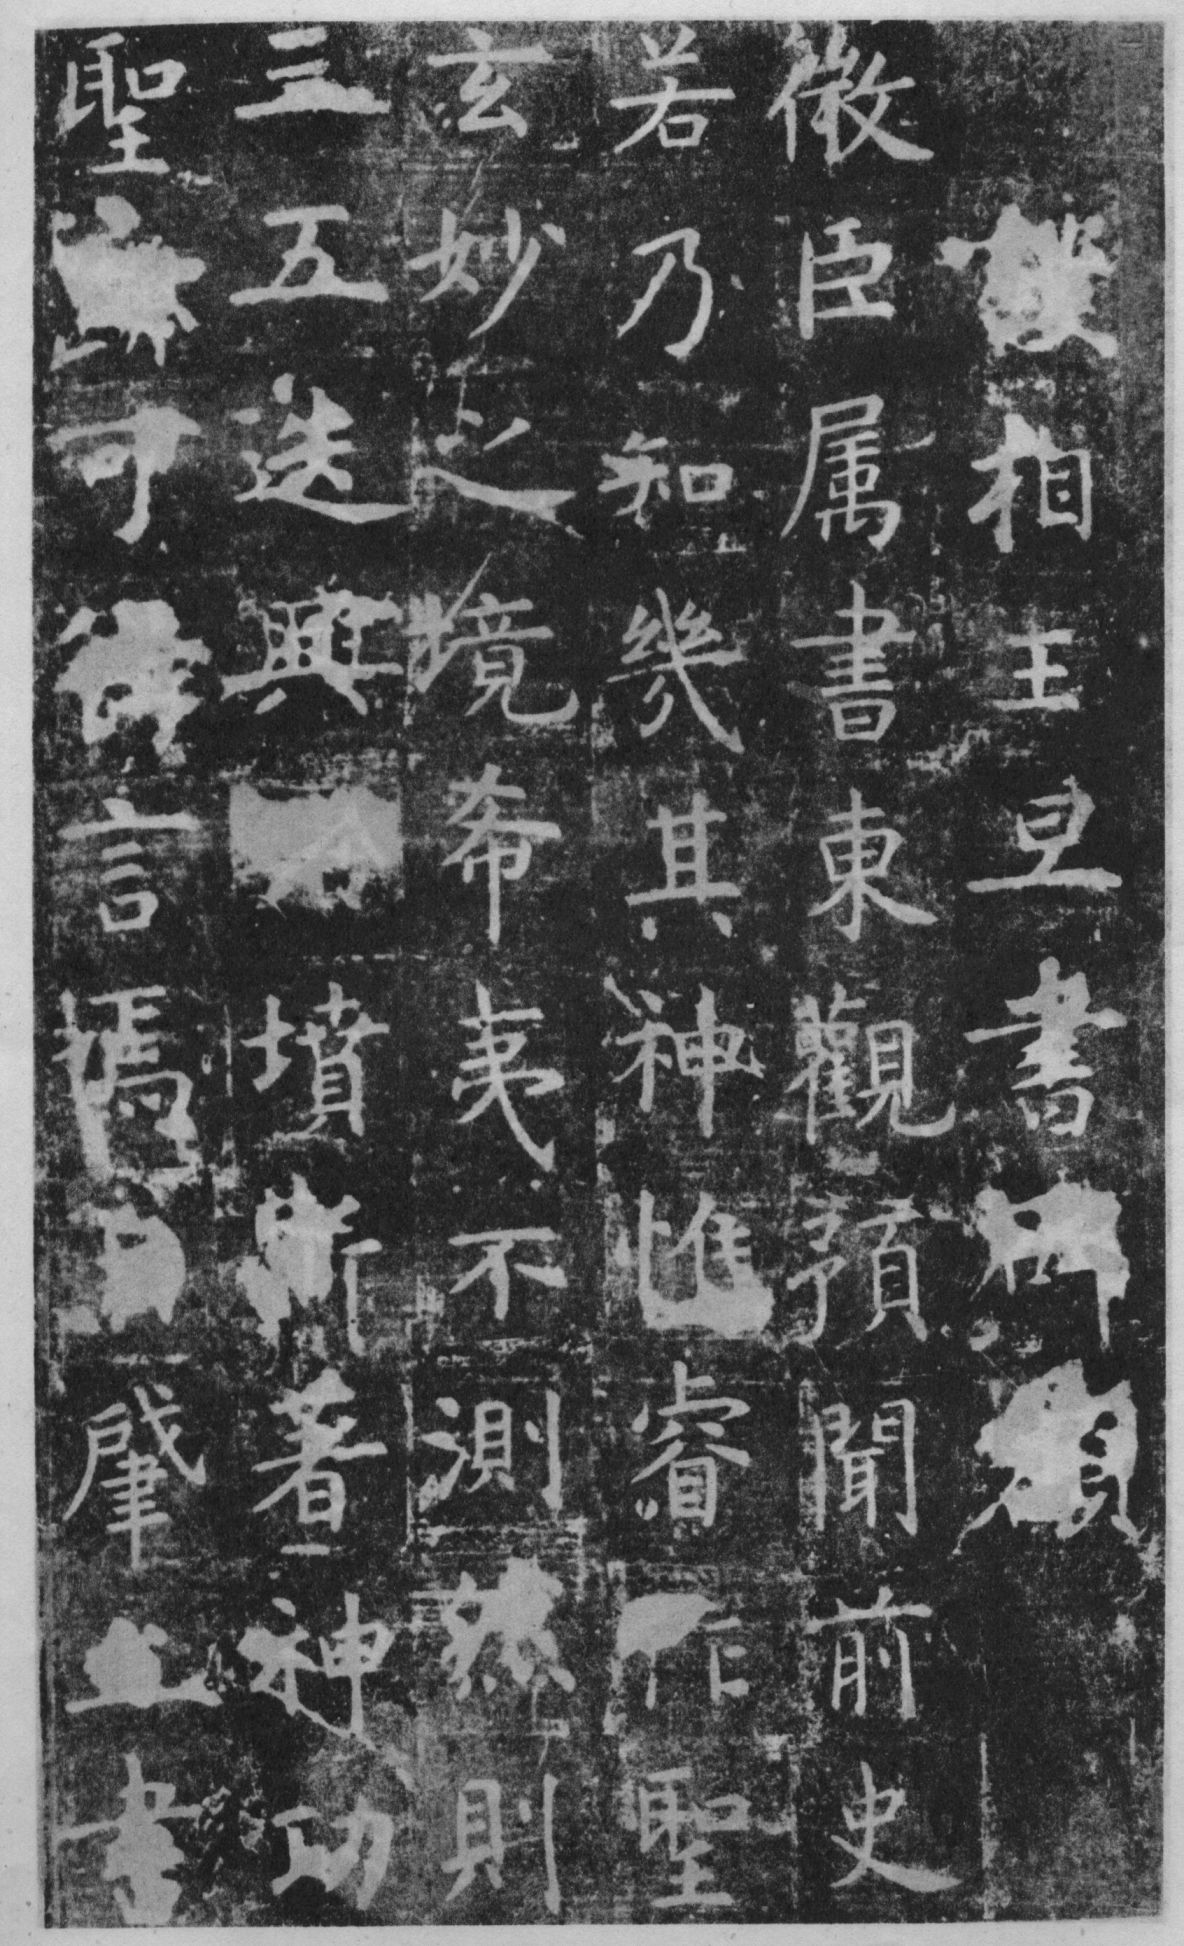 相王旦書碑額
微臣属書東觀預聞前史
若乃知幾其神惟睿作聖
玄妙之境希夷不測然則
三五迭興墳斯著神功
聖可得言焉肇立書